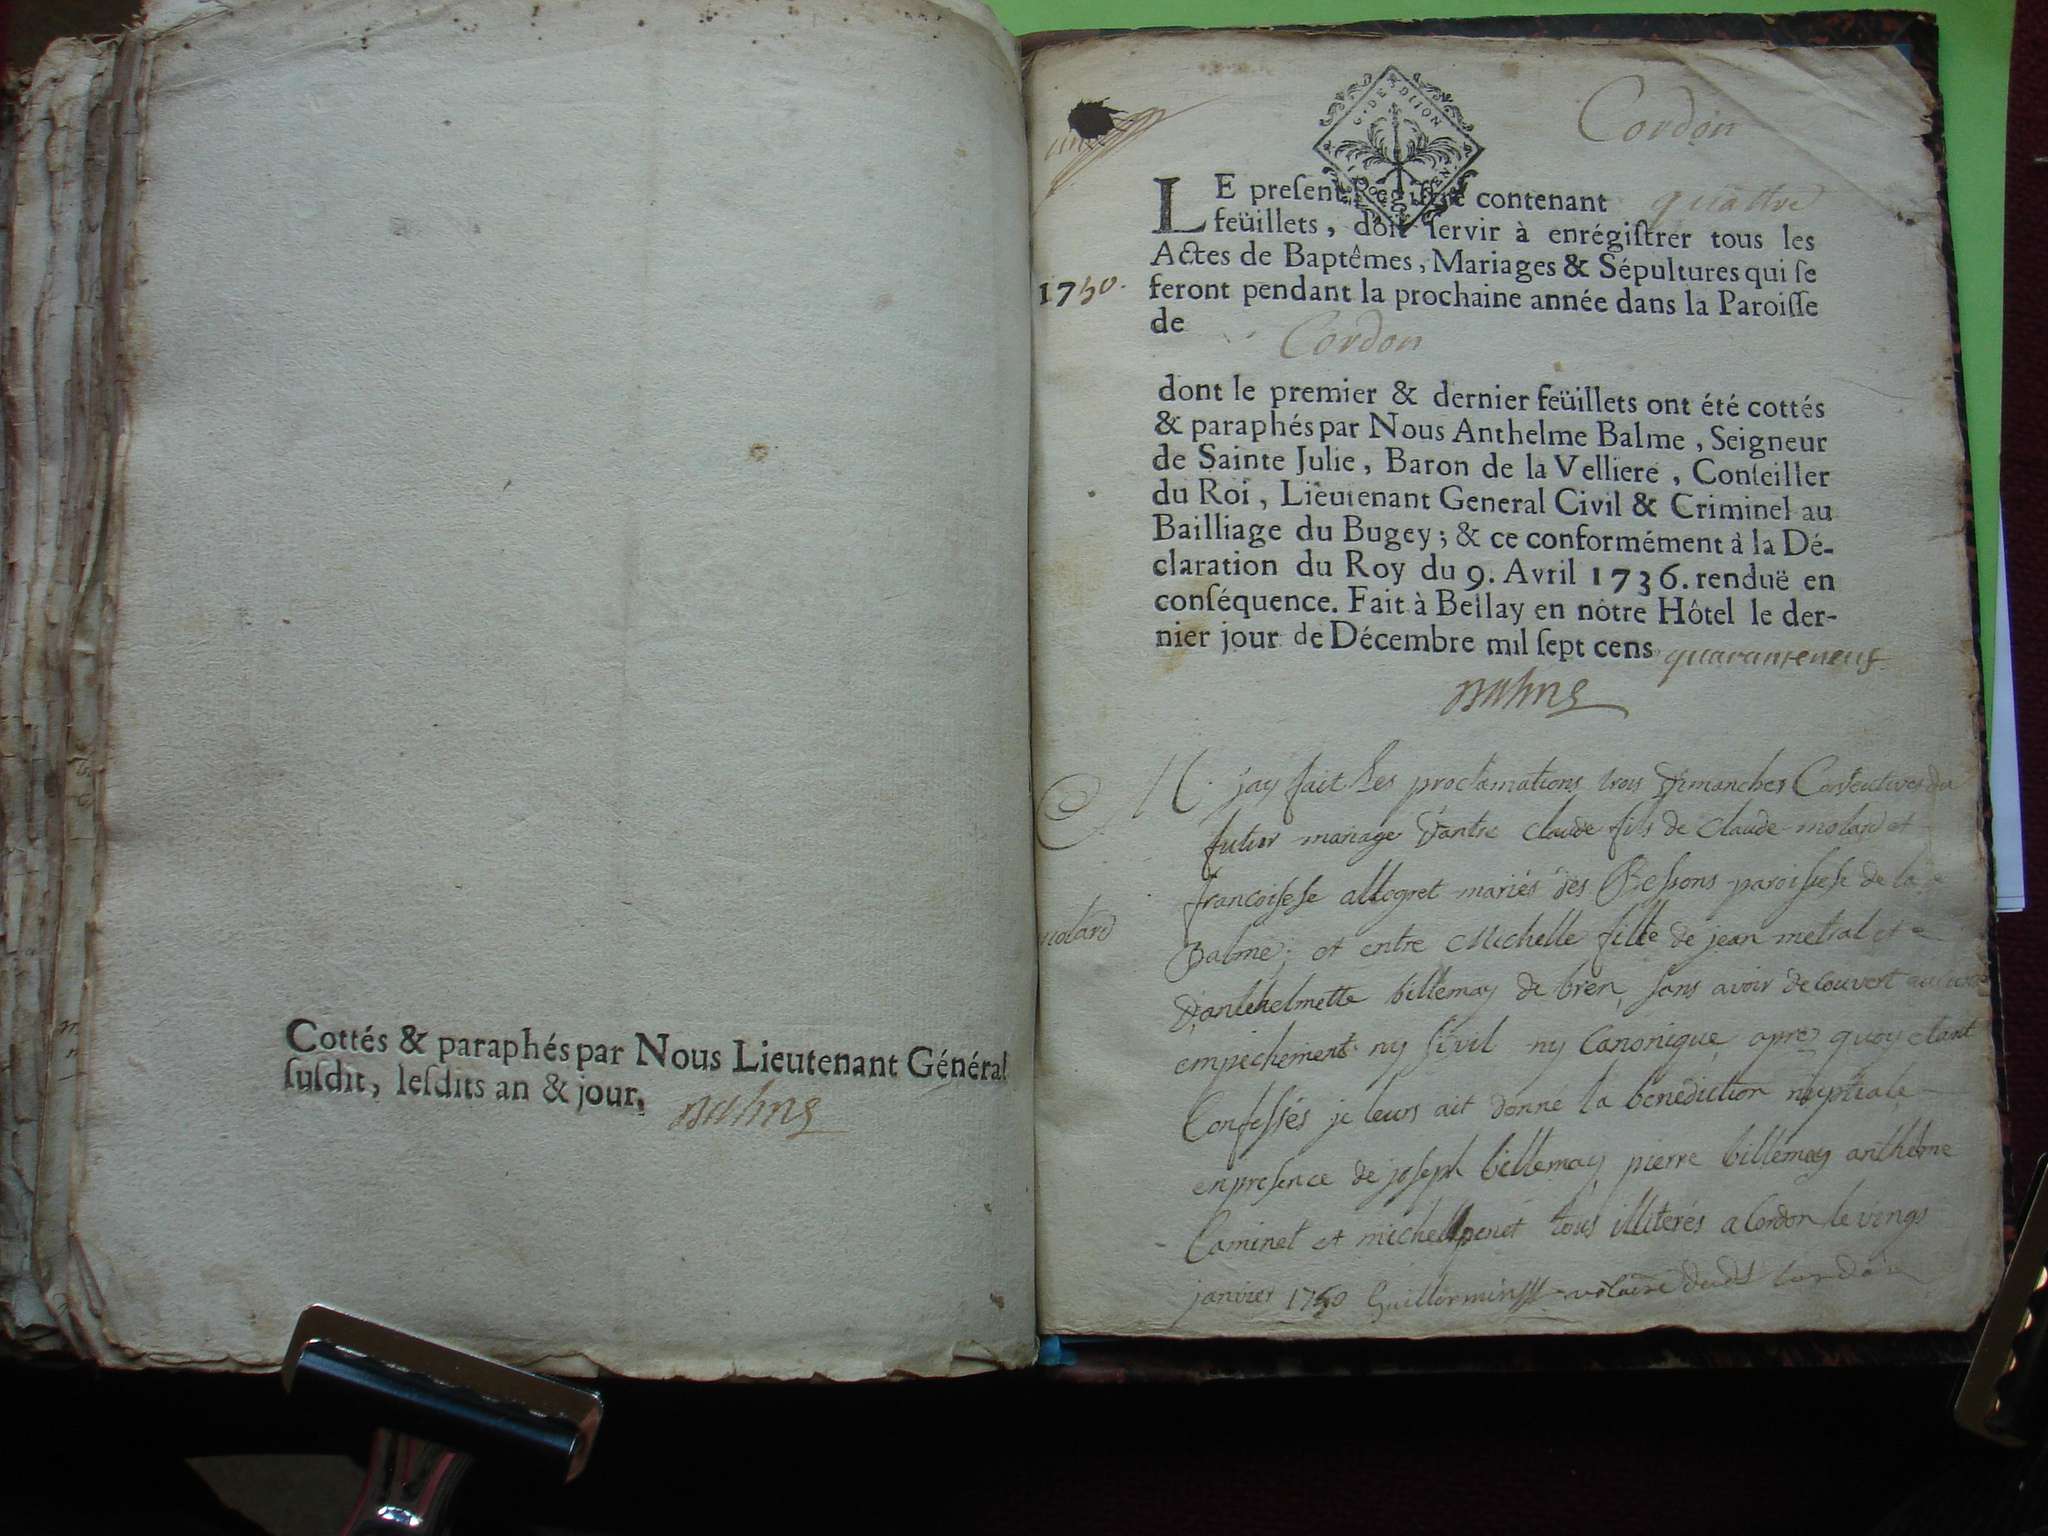 Cottés & paraphés par Nous Lieutenant Général
susdit, lesdits an & jour,
Balme
Cordon
G. DE DIJON
LE present Registre contenant quattre
feüillets, doit servir à enrégistrer tous les
Actes de Baptêmes, Mariages & Sépultures qui se
1750.
feront pendant la prochaine année dans la Paroisse
de
Cordon
dont le premier & dernier feüillets ont été cottés
& paraphés par Nous Anthelme Balme, Seigneur
de Sainte Julie, Baron de la Velliere, Conseiller
du Roi, Lieutenant General Civil & Criminel au
Bailliage du Bugey; & ce conformément à la Dé-
claration du Roy du 9. Avril 1736. renduë en
conséquence. Fait à Bellay en nôtre Hôtel le der-
nier jour de Décembre mil sept cens quaranteneuf
Balme
jay fait Les proclamations trois Dimanches Consecutives du
futur mariage D'antre Claude fils de Claude molard et
francoisese allegret mariés des Bessons paroissese de la
molard
Balme; et entre Michelle fille de jean metral et
D'antehelmette billemay de bren, sans avoir decouvert aucuns
empechement ny sivil ny Canonique, aprez quoy etant
Confessés je leurs ait donné la benediction nuptiale
enpresence de joseph billemay, pierre billemay anthelme
Caminet et michel penet tous illiterés a Cordon le vings
janvier 1750 Guillermin Cordon